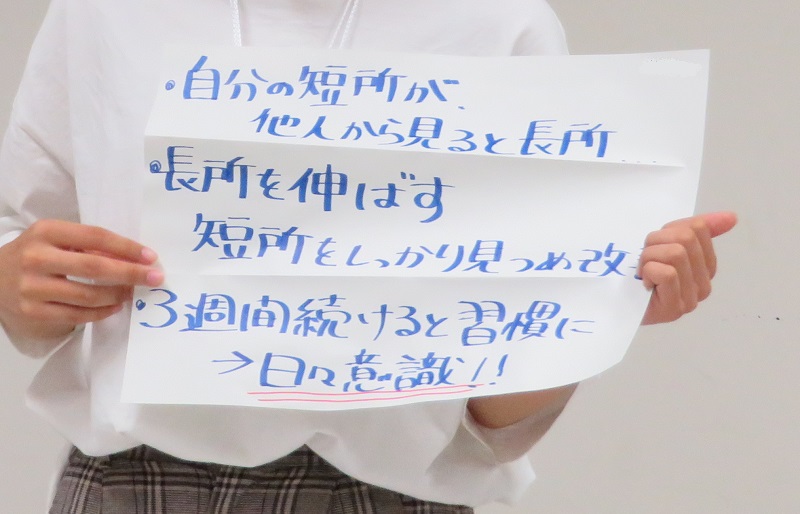 ・自分の短所が、
他人から見ると長所...
・長所を伸ばす
短所をしっかり見つめ改
・3週間続けると習慣に
→日々意識!!